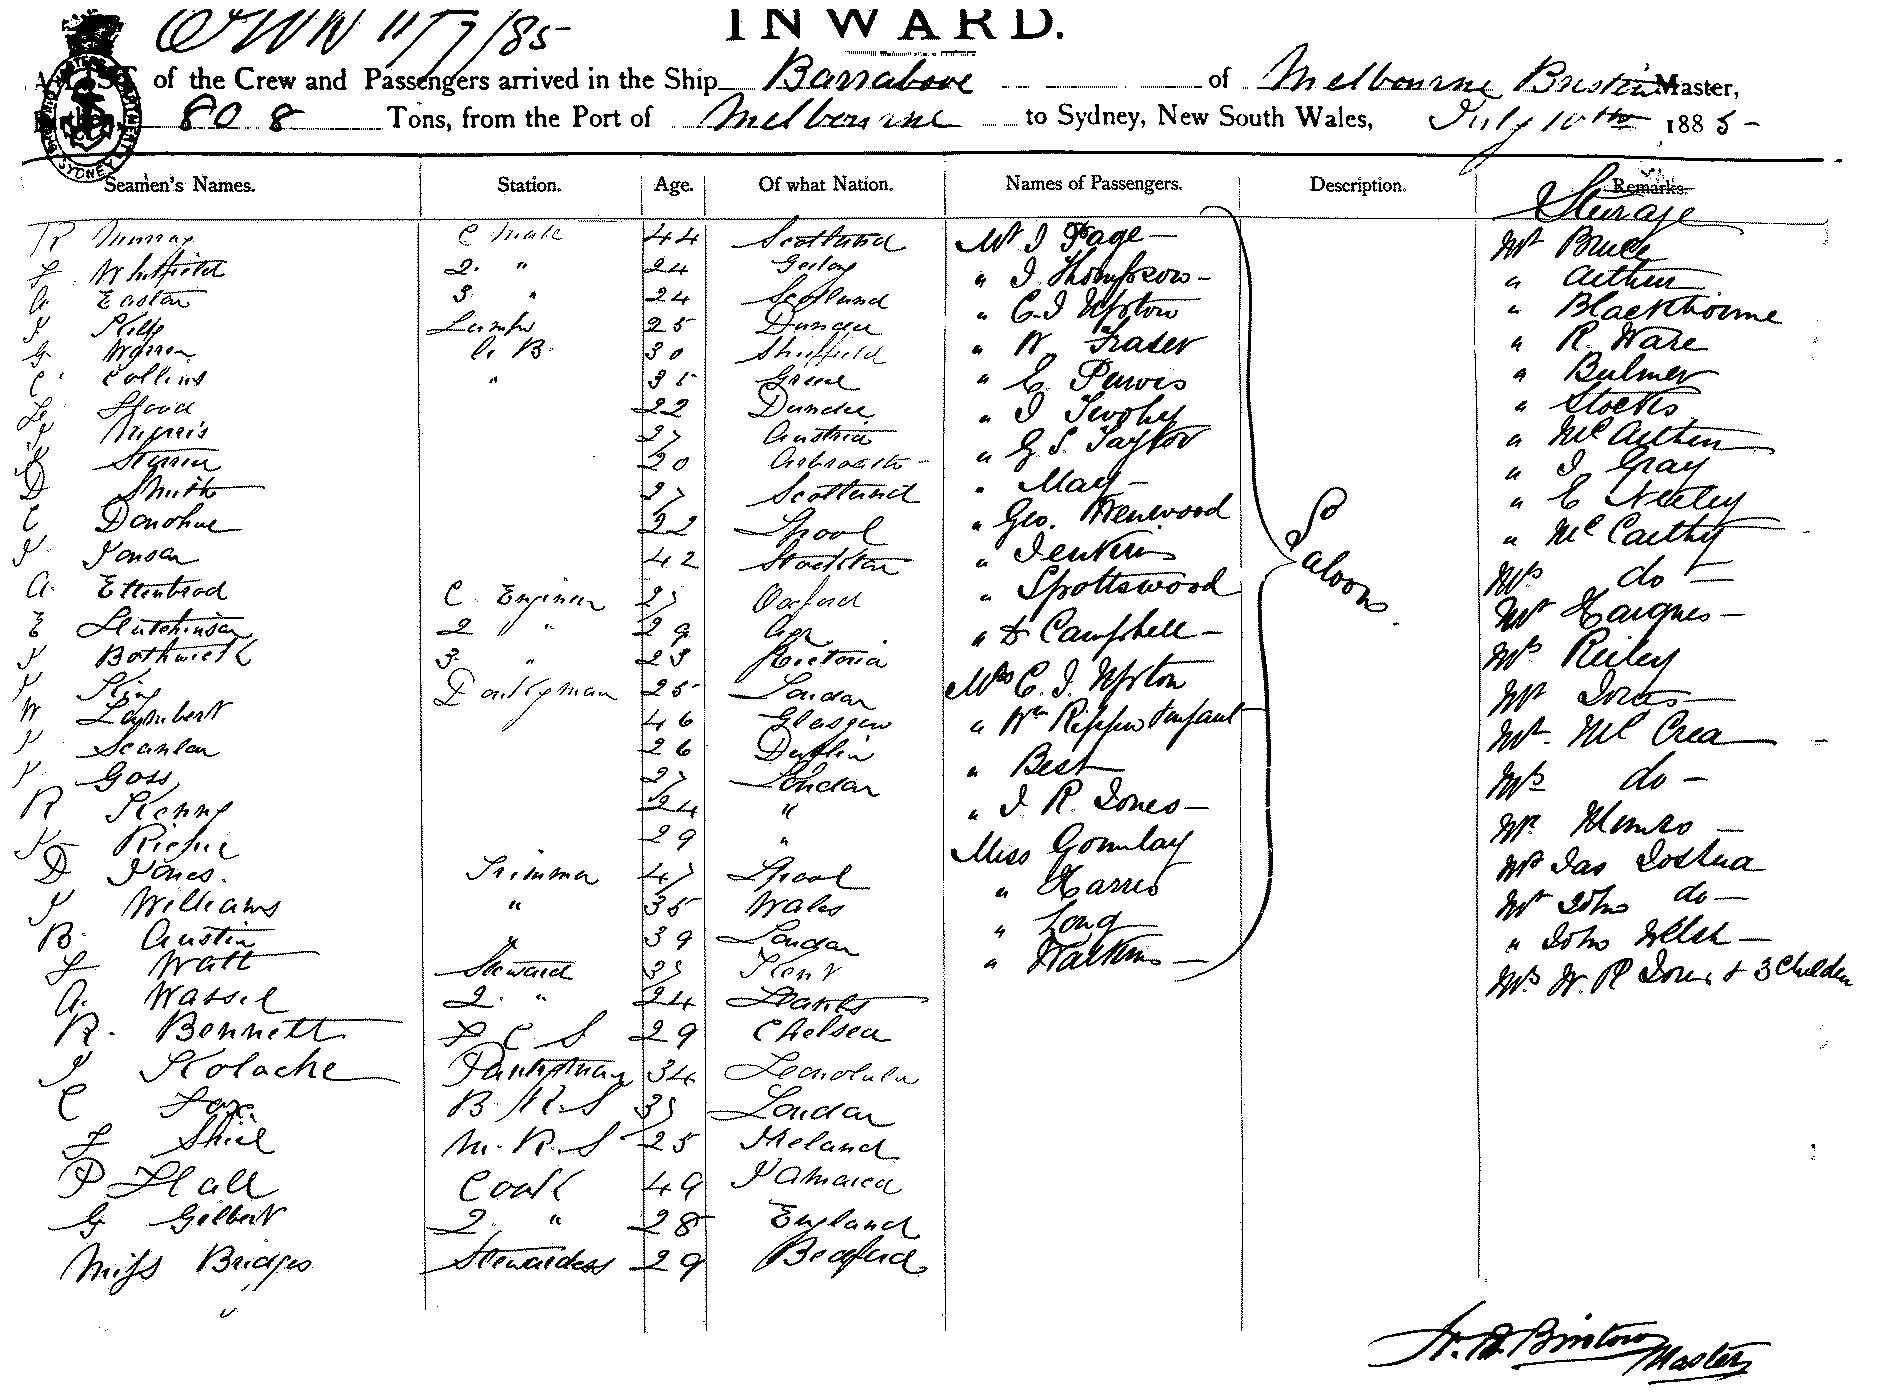 OWN 11/7/85
INWARD.
A LIST of the Crew and Passengers arrived in the Ship Barrabool of Melbourne Master,
808 Tons, from the Port of Melbourne to Sydney, New South Wales, July 10th 1885
Seamen's Names. Station. Age. Of what Nation. Names of Passengers. Description. Remarks.
Steerage
R Murray C Mate 44 Scotland Mr J Page Mr Bruce
F Whitfield 2 " 24 Geelong " J Thompson " Arthur
A Easton 3 " 24 Scotland " C. J Upton " Blackthorne
Lamps 25 Dundee " W Fraser " R. Ware
G Warren A B. 30 Sheffield " E Purves " Bulmer
C Collins " 35 Greece " J Twohy " Stocks
Hood 22 Dundee " G S. Taylor " McArthur
27 Austria " May " J Gray
20 Arbroath " Geo. " E Neeley
D Smith 27 Scotland " Jenkins " McCarthy
C Donohue 22 Lpool " Spottswood Mrs do
J Jansen 42 Stockton " D Campbell Mr Hargnes
A. C Engineer 27 Oxford Mrs C. J. Upton Mrs Reiley
E Hutchinson 2 " 29 " Wm Rippin & infant Mr Jones
J Bothwick 3 " 23 Victoria " Best Mr McCrea
J King Donkeyman 25 London " J R. Jones Mrs do
W Lambert 46 Glasgow Miss Mr Munro
J Scanlan 26 Dublin " Harris Mr Jas Joshua
J Goss 27 London " Long Mr John do
R Kenny 24 " " Watkins " John Welsh
29 " Mrs W. R Jones & 3 Children
Saloon
D Jones. Trimmer 47 Lpool
J Williams " 35 Wales
B. Austin " 39 London
F Watt Steward 37 Kent
A. Wassel 2 " 24 Hants
R. Bennett F C S 29 Chelsea
J Kolache Pantryman 34 Honolulu
C Fox B. R. S 37 London
F Shiel M. R. S 25 Ireland
P Hall Cook 49 Jamaica
G Gilbert 2 " 28 England
Miss Bridges Stewardess 29 Bedford
Master